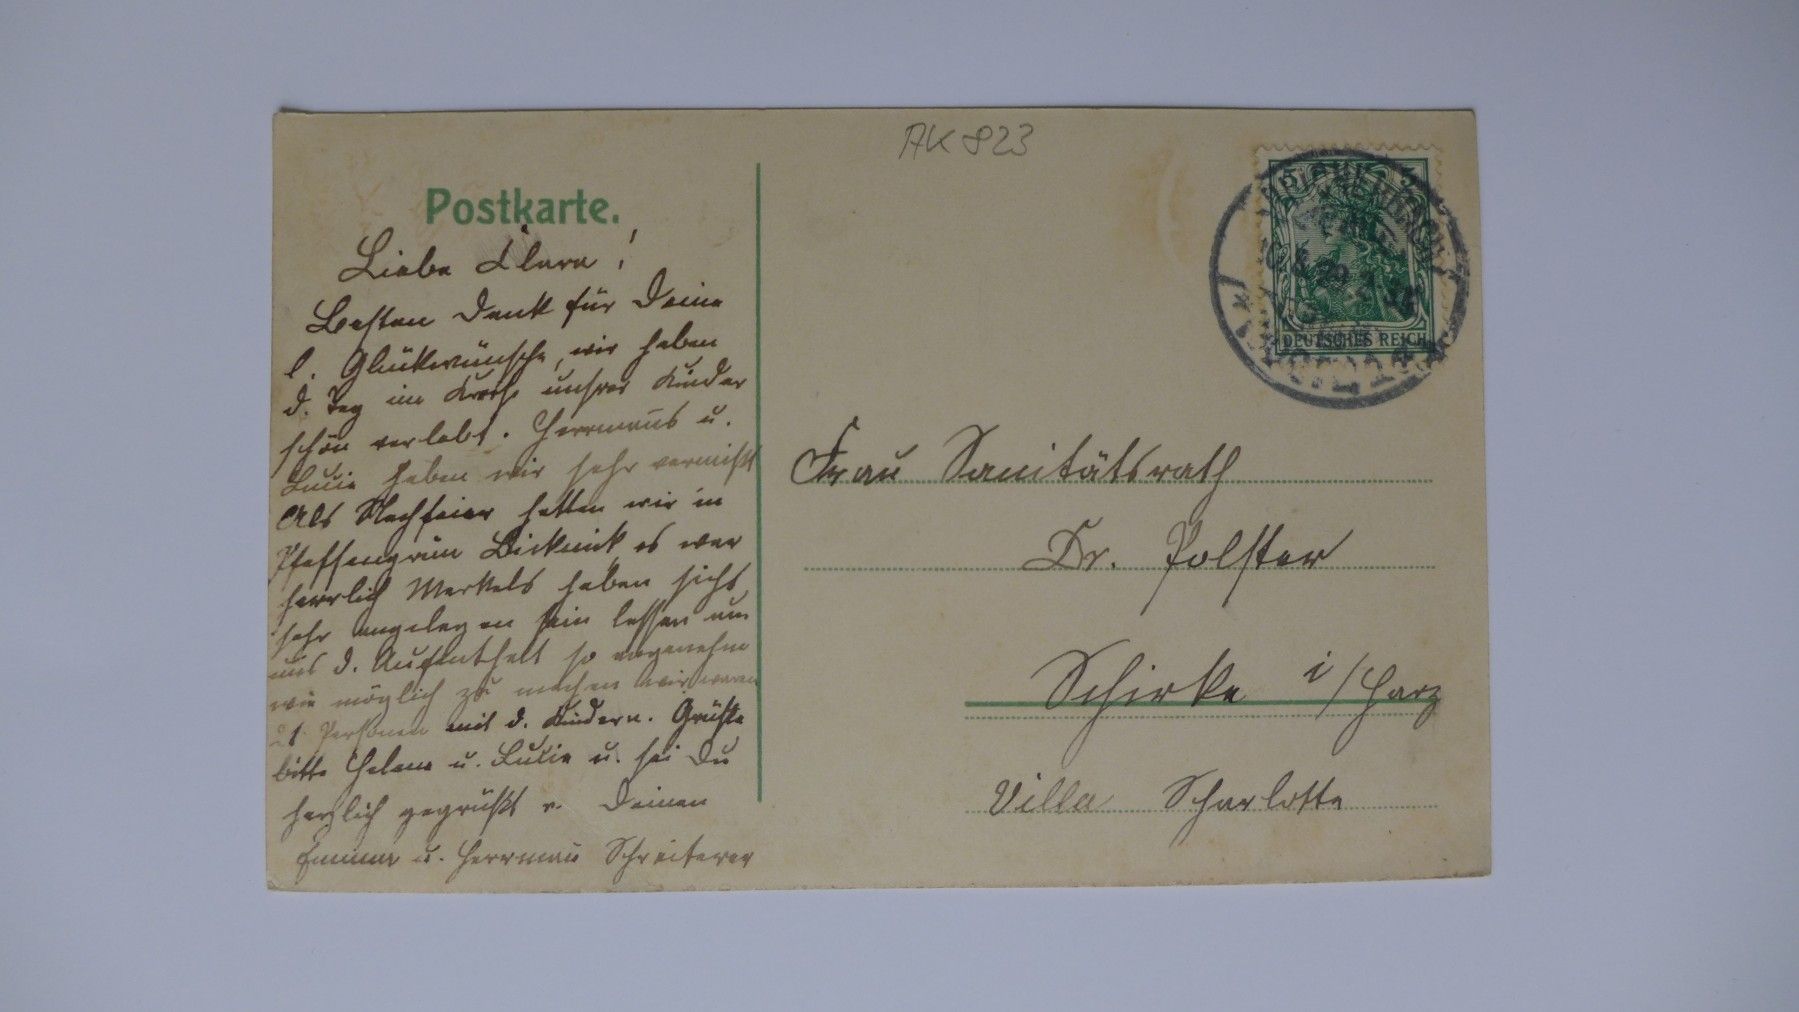 AK 823
Postkarte.
Liebe Clara!
Besten Dank für Deine
l. Glückwünsche, wir haben
d. Tag im Kreise unsrer Kinder
schön verlebt. Herrmanns u.
Lucie haben wir sehr vermißt
Als Nachfeier hatten wir in
Pfaffengrün Picknick es war
herrlich Merkels haben sichs
sehr angelegen sein lassen um
uns d. Aufenthalt so angenehm
wie möglich zu machen wir waren
21 Personen mit d. Kindern. Grüße
bitte Helene u. Lucie u. sei Du
herzlich gegrüßt v. Deinen
Emma u. Herrmann Schreiterer
5 5
DEUTSCHES REICH
Frau Sanitätsrath
Dr. Polster
Schirke i/Harz
Villa Scharlotte